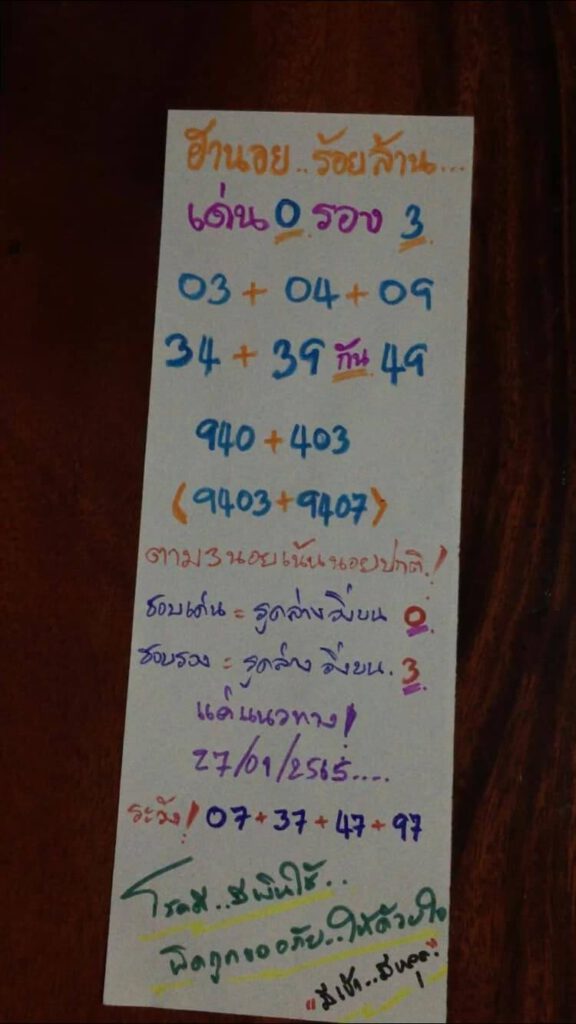 ฮานอย..ร้อยล้าน...
เด่น 0 รอง 3
03 + 04 + 09
34 + 39 กัน 49
940 + 403
(9403 + 9407)
ตาม 3 นอยเน้นนอยปกติ.!
ชอบเด่น = รูดล่างวิ่งบน 0
ชอบรอง = รูดล่าง วิ่งบน. 3
แค่แนวทาง!
27/09/2565....
ระวัง! 07 + 37 + 47 + 97
โชคดี..มีเงินใช้..
ผิดถูกขออภัย..ให้ด้วยใจ
"มีเข้า..มีหลุด"